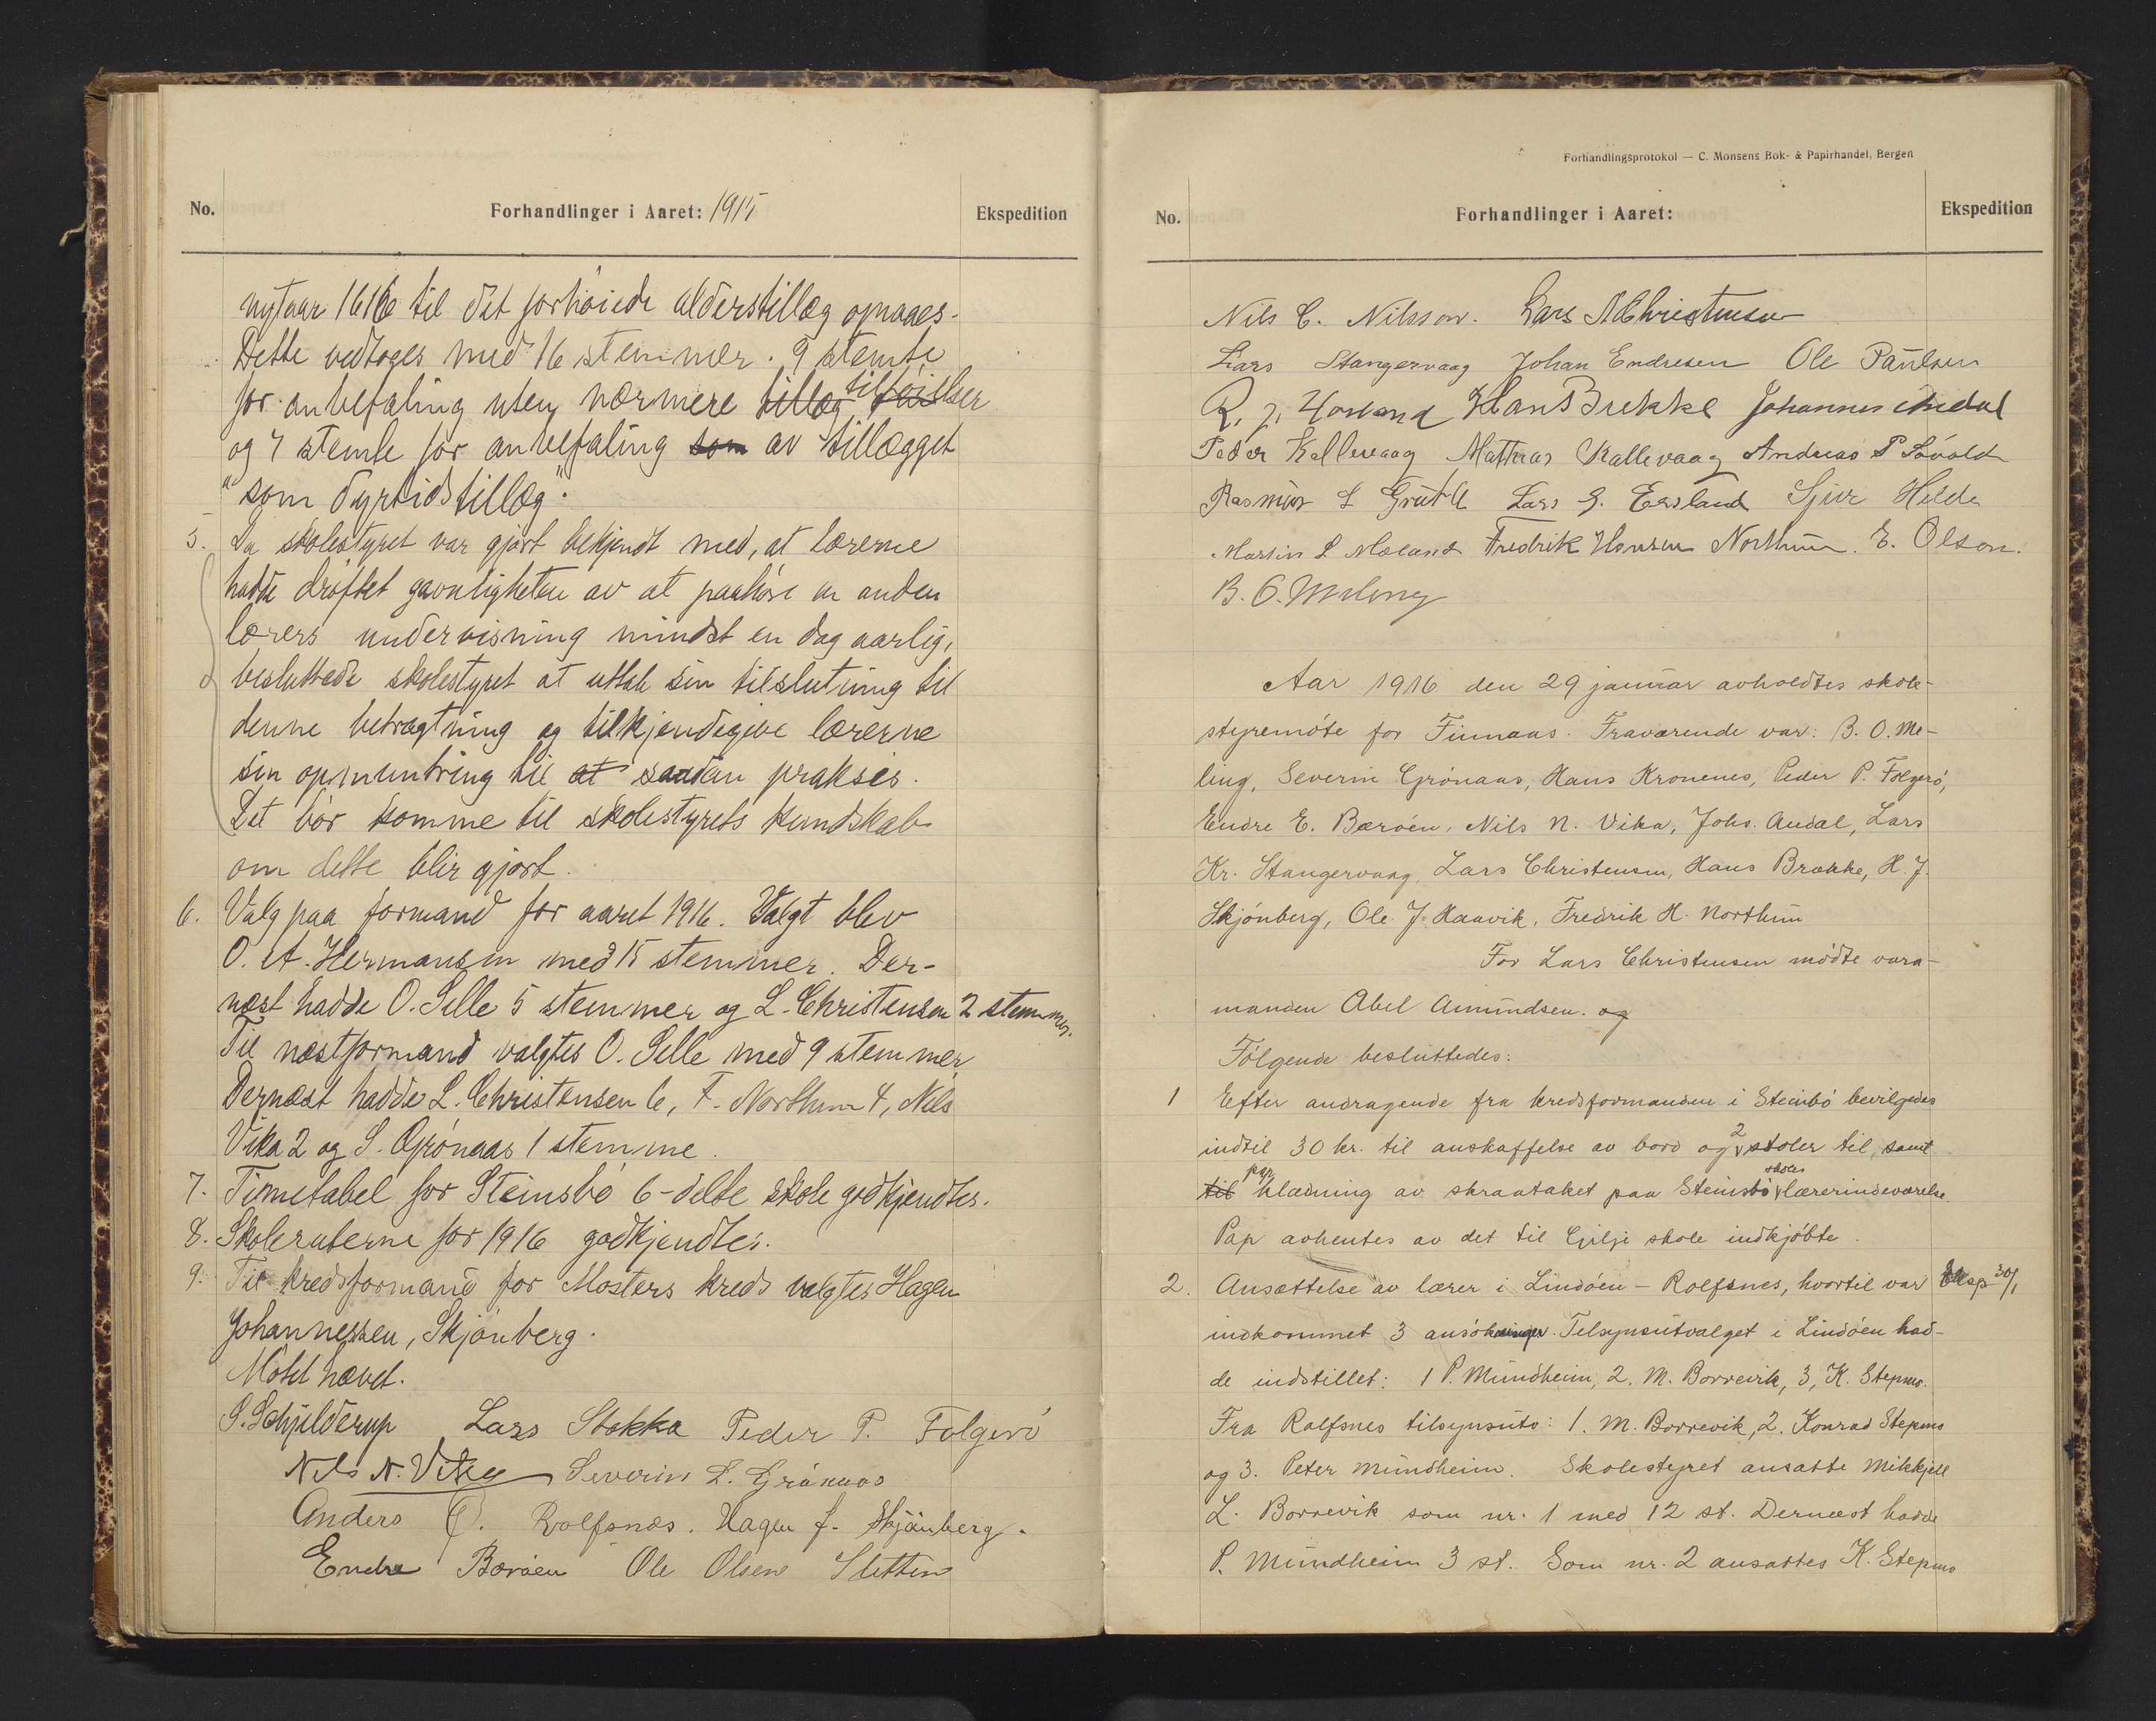 No.
Forhandlinger i Aaret: 1915
Ekspedition
nytaar 1616 til det forhöiede alderstillæg opnaaes.
Dette vedtoges med 16 stemmer. 9 stemte
for anbefaling uten nærmere tillæg tilföielser
og 7 stemte for anbefaling som av tillægget
"som dyrtidstillæg".
5. Da skolestyret var gjort bekjendt med, at lærerne
hadde dröftet gavnligheten av at paahöre en anden
lærers undervisning mindst en dag aarlig,
besluttede skolestyret at uttale sin tilslutning til
denne betragtning og tilkjendegive lærerne
sin opmuntring til at saadan praksis.
Det bör komme til skolestyrets kundskab
om dette blir gjort.
6. Valg paa formand for aaret 1916. Valgt blev
O. A. Hermansen med 15 stemmer. Der-
næst hadde O. Selle 5 stemmer og L. Christensen 2 stemmer.
Til næstformand valgtes O. Selle med 9 stemmer
Dernæst hadde L. Christensen 6, F. Northun 4, Nils
Vika 2 og S. Grönaas 1 stemme.
7. Timetabel for Steinsbö 6-delte skole godkjendtes.
8. Skoleruterne for 1916 godkjendtes.
9. Til kredsformand for Mosters kreds valgtes Hagen
Johannessen, Skjönberg.
Mötet hævet.
S. Schjelderup Lars Stokka Peder P. Folgerö
Nils N. Vika Severin L. Grönaas
Anders O. Rolfsnes. Hagen J. Skjönberg.
Endre Bæröen Ole Olsen Sletten
Forhandlingsprotokol — C. Monsens Bok- & Papirhandel, Bergen
No.
Forhandlinger i Aaret:
Ekspedition
Nils C. Nilsson. Lars A Christensen
Lars Stangervaag Johan Endresen Ole Paulsen
R. J. Hovland Hans Brekke Johannes Andal
Peder Kallevaag Mathias Kallevaag Andreas P Såvold
Rasmus L Grutle Lars G. Eesland Sjur Helde
Martin L Mæland Fredrik Hansen Northun. E. Olson.
B. O. Meling
Aar 1916 den 29 januar avholdtes skole-
styremöte for Finnaas. Fraværende var: B. O. Me-
ling, Severin Grönaas, Hans Kronenes, Peder P. Folgerö,
Endre E. Bæröen, Nils N. Vika, Johs. Andal, Lars
Kr. Stangervaag, Lars Christensen, Hans Brække, H. J.
Skjönberg, Ole J. Haavik, Fredrik H. Northun
For Lars Christensen mödte vara-
manden Abel Amundsen. og
Fölgende besluttedes:
1 Efter andragende fra kredsformanden i Steinsbö bevilgedes
indtil 30 kr. til anskaffelse av bord og 2 stoler til, samt
til pap klædning av skraataket paa Steinsbö skoles lærerindeværelse.
Pap avhentes av det til Gilje skole indkjöbte.
2. Ansættelse av lærer i Lindöen - Rolfsnes, hvortil var Eksp 30/1
indkommet 3 ansökninger. Tilsynsutvalget i Lindöen had-
de indstillet: 1 P. Mundheim, 2. M. Borrevik, 3, K. Stepmo.
Fra Rolfsnes tilsynsutv: 1. M. Borrevik, 2. Konrad Stepmo
og 3. Peter Mundheim. Skolestyret ansatte Mikkjell
L. Borrevik som nr. 1 med 12 st. Dernæst hadde
P. Mundheim 3 st. Som nr. 2 ansattes K. Stepmo